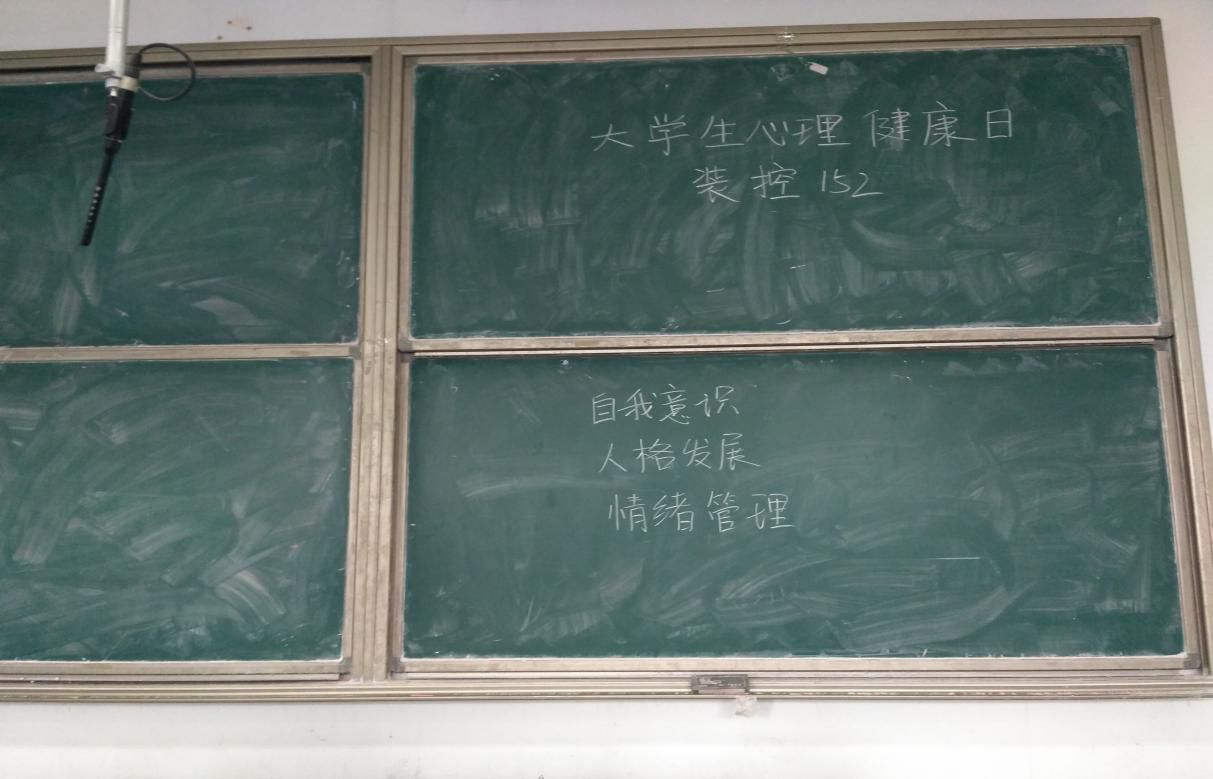 大学生心理健康日
装控152
自我意识
人格发展
情绪管理